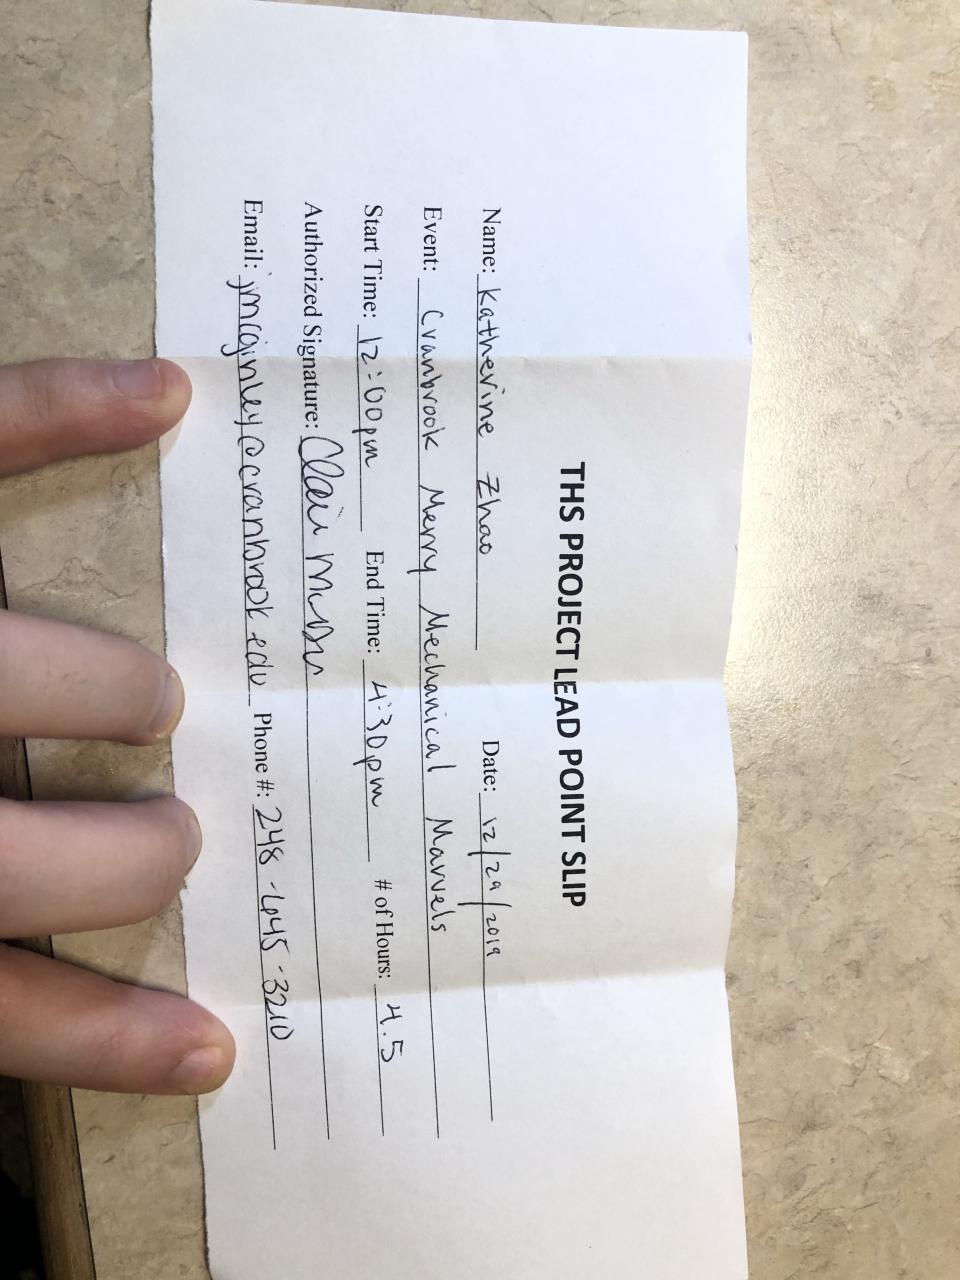 THS PROJECT LEAD POINT SLIP
Name: Katherine Zhao Date: 12/29/2019
Event: Cranbrook Merry Mechanical Marvels
Start Time: 12:00pm End Time: 4:30pm # of Hours: 4.5
Authorized Signature:
Email: jmcginley@cranbrook.edu Phone #: 248-645-3210